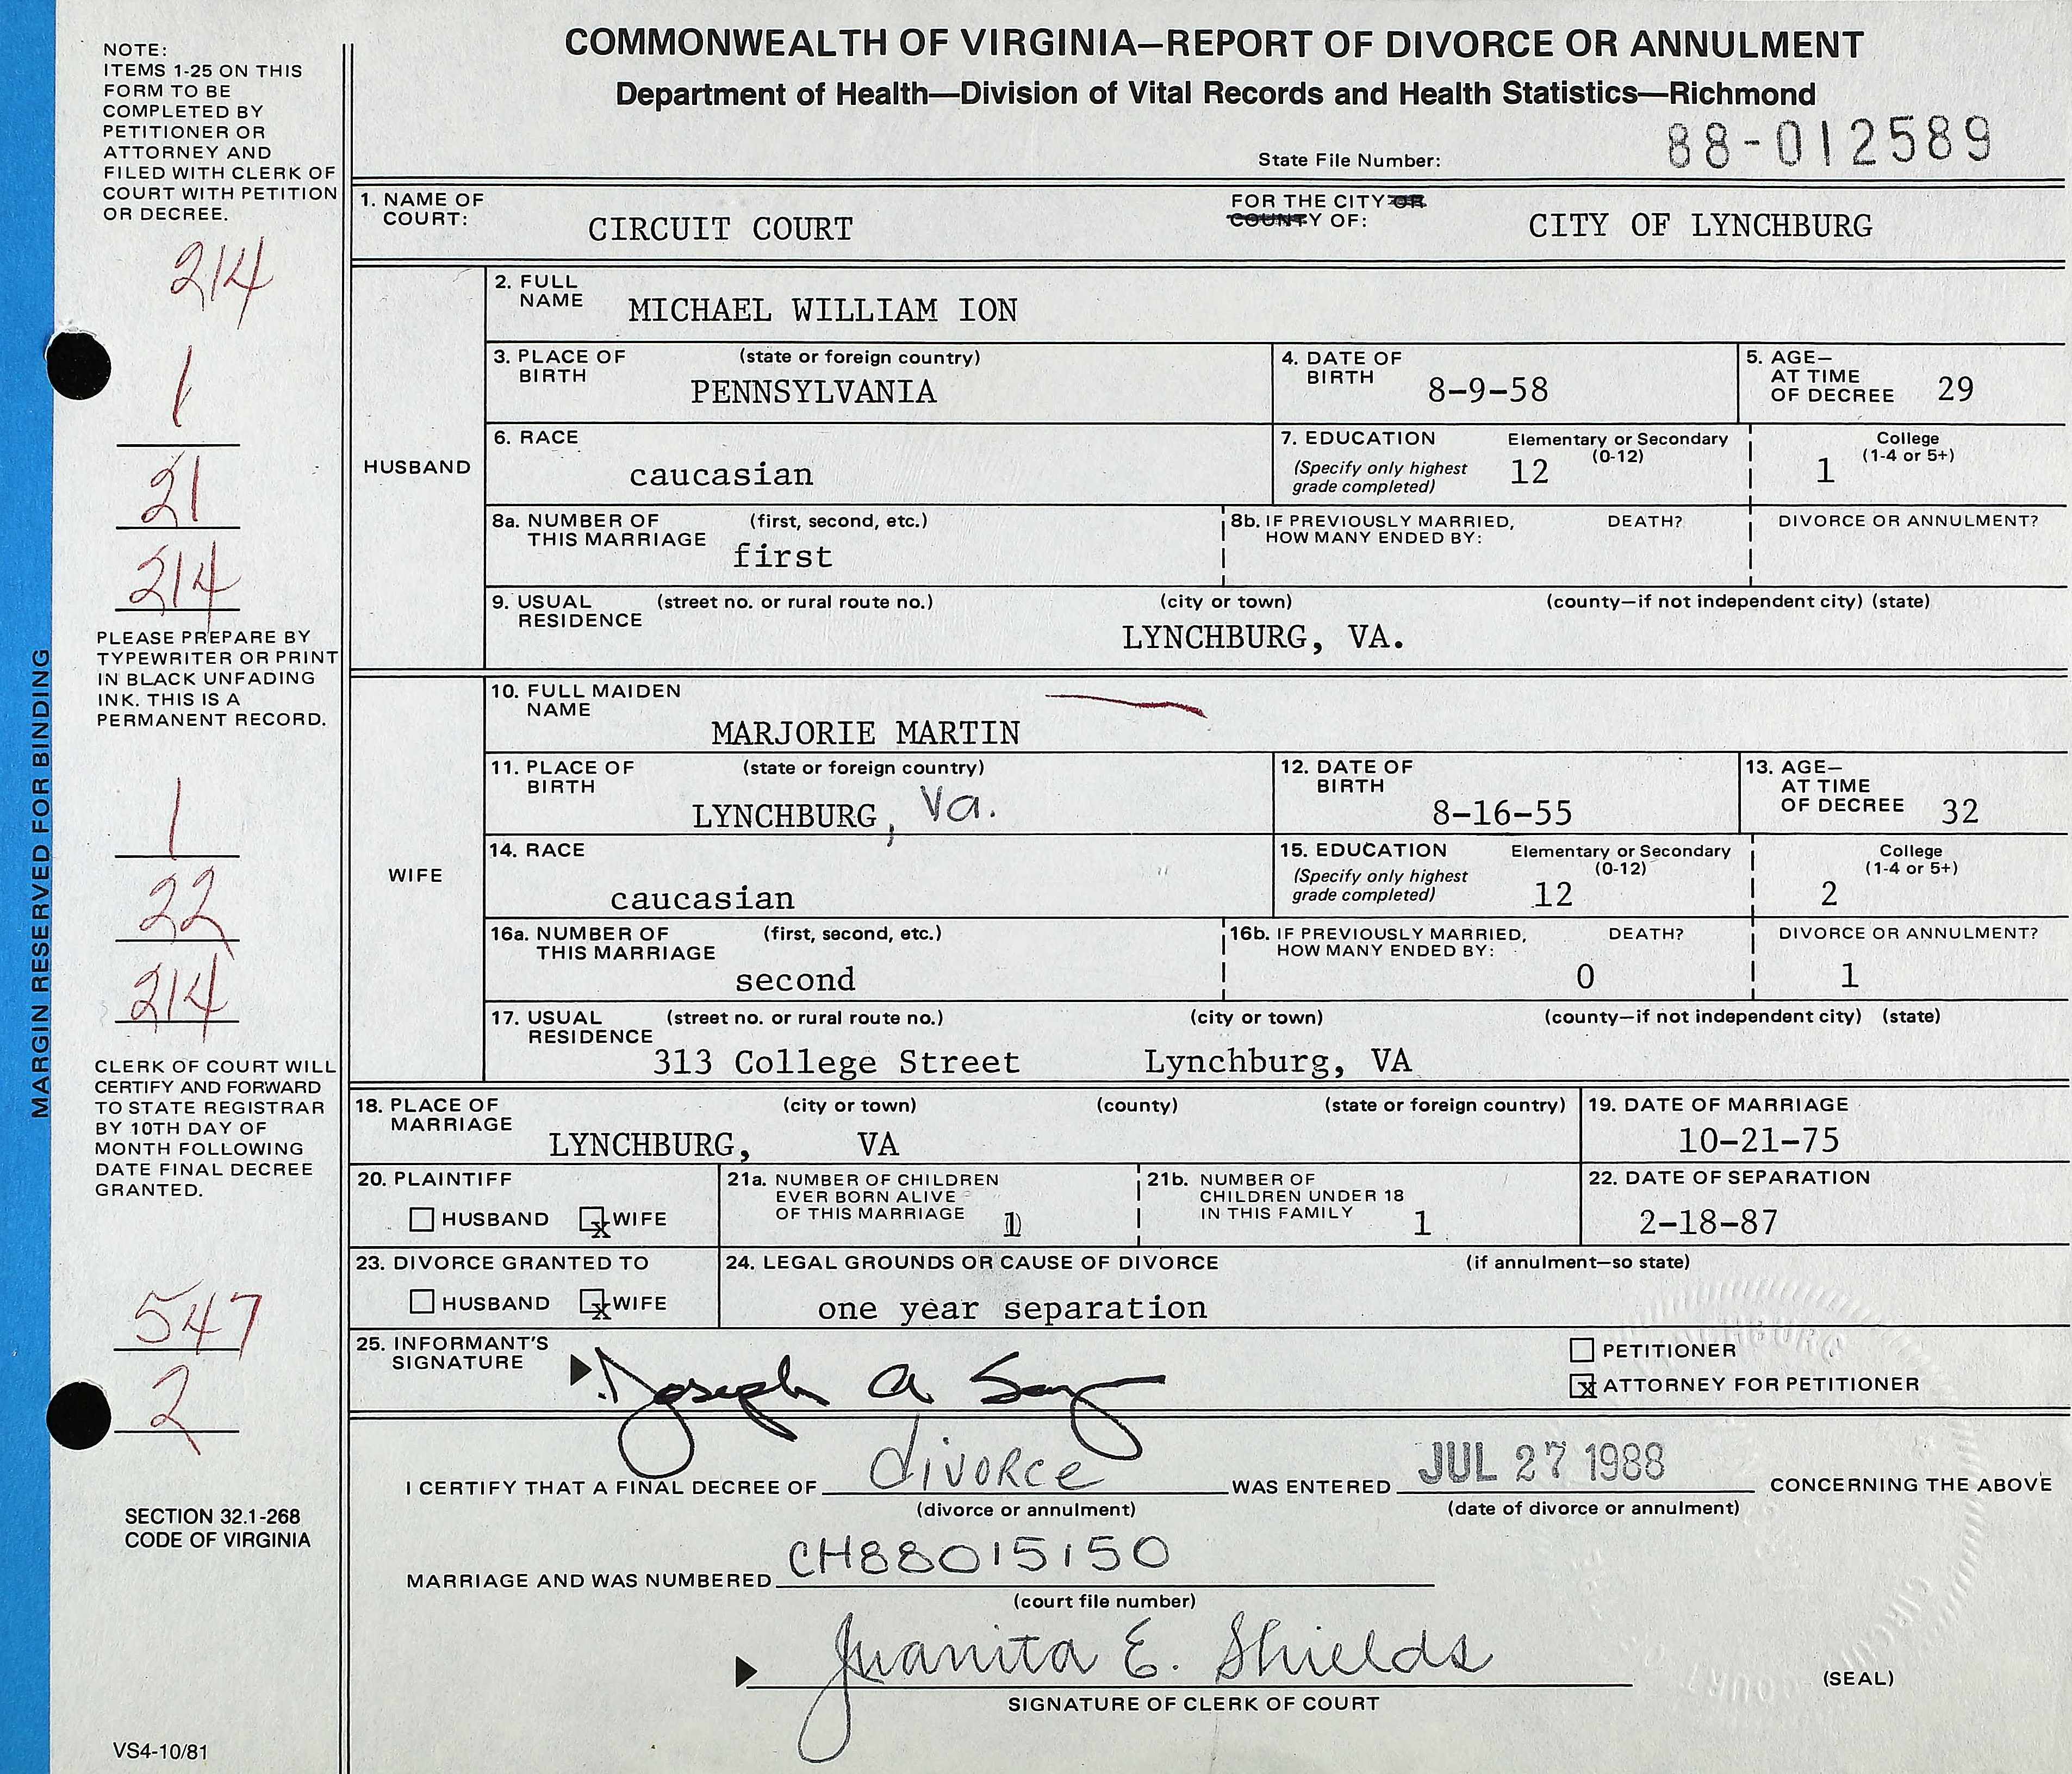 COMMONWEALTH OF VIRGINIA—REPORT OF DIVORCE OR ANNULMENT
Department of Health—Division of Vital Records and Health Statistics—Richmond
State File Number: 88-012589
NOTE:
ITEMS 1-25 ON THIS
FORM TO BE
COMPLETED BY
PETITIONER OR
ATTORNEY AND
FILED WITH CLERK OF
COURT WITH PETITION
OR DECREE.
214
1
21
214
PLEASE PREPARE BY
TYPEWRITER OR PRINT
IN BLACK UNFADING
INK. THIS IS A
PERMANENT RECORD.
1
22
214
CLERK OF COURT WILL
CERTIFY AND FORWARD
TO STATE REGISTRAR
BY 10TH DAY OF
MONTH FOLLOWING
DATE FINAL DECREE
GRANTED.
547
2
SECTION 32.1-268
CODE OF VIRGINIA
VS4-10/81
MARGIN RESERVED FOR BINDING
1. NAME OF
COURT: CIRCUIT COURT
FOR THE CITY OR
COUNTY OF: CITY OF LYNCHBURG
HUSBAND
2. FULL
NAME MICHAEL WILLIAM ION
3. PLACE OF (state or foreign country)
BIRTH PENNSYLVANIA
4. DATE OF
BIRTH 8-9-58
5. AGE—
AT TIME
OF DECREE 29
6. RACE
caucasian
7. EDUCATION Elementary or Secondary
(Specify only highest (0-12)
grade completed) 12
College
(1-4 or 5+)
1
8a. NUMBER OF (first, second, etc.)
THIS MARRIAGE first
8b. IF PREVIOUSLY MARRIED, DEATH? DIVORCE OR ANNULMENT?
HOW MANY ENDED BY:
9. USUAL (street no. or rural route no.) (city or town) (county—if not independent city) (state)
RESIDENCE LYNCHBURG, VA.
WIFE
10. FULL MAIDEN
NAME MARJORIE MARTIN
11. PLACE OF (state or foreign country)
BIRTH LYNCHBURG, Va.
12. DATE OF
BIRTH 8-16-55
13. AGE—
AT TIME
OF DECREE 32
14. RACE
caucasian
15. EDUCATION Elementary or Secondary
(Specify only highest (0-12)
grade completed) 12
College
(1-4 or 5+)
2
16a. NUMBER OF (first, second, etc.)
THIS MARRIAGE second
16b. IF PREVIOUSLY MARRIED, DEATH? DIVORCE OR ANNULMENT?
HOW MANY ENDED BY: 0 1
17. USUAL (street no. or rural route no.) (city or town) (county—if not independent city) (state)
RESIDENCE 313 College Street Lynchburg, VA
18. PLACE OF (city or town) (county) (state or foreign country)
MARRIAGE LYNCHBURG, VA
19. DATE OF MARRIAGE
10-21-75
20. PLAINTIFF
HUSBAND x WIFE
21a. NUMBER OF CHILDREN
EVER BORN ALIVE
OF THIS MARRIAGE 1
21b. NUMBER OF
CHILDREN UNDER 18
IN THIS FAMILY 1
22. DATE OF SEPARATION
2-18-87
23. DIVORCE GRANTED TO
HUSBAND x WIFE
24. LEGAL GROUNDS OR CAUSE OF DIVORCE (if annulment—so state)
one year separation
25. INFORMANT'S
SIGNATURE Joseph A
PETITIONER
x ATTORNEY FOR PETITIONER
I CERTIFY THAT A FINAL DECREE OF divorce WAS ENTERED JUL 27 1988 CONCERNING THE ABOVE
(divorce or annulment) (date of divorce or annulment)
MARRIAGE AND WAS NUMBERED CH88015150
(court file number)
Juanita E. Shields
SIGNATURE OF CLERK OF COURT
(SEAL)